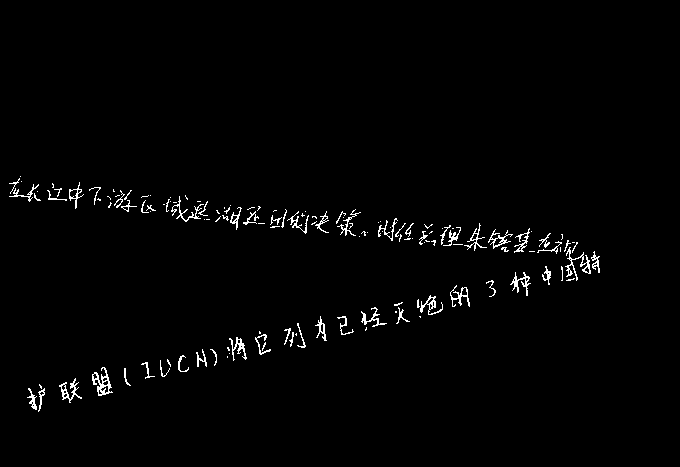 在长江中下游区域退湖还田的决策。时任总理朱镕基在视
护联盟(IUCN)将它列为已经灭绝的3种中国特